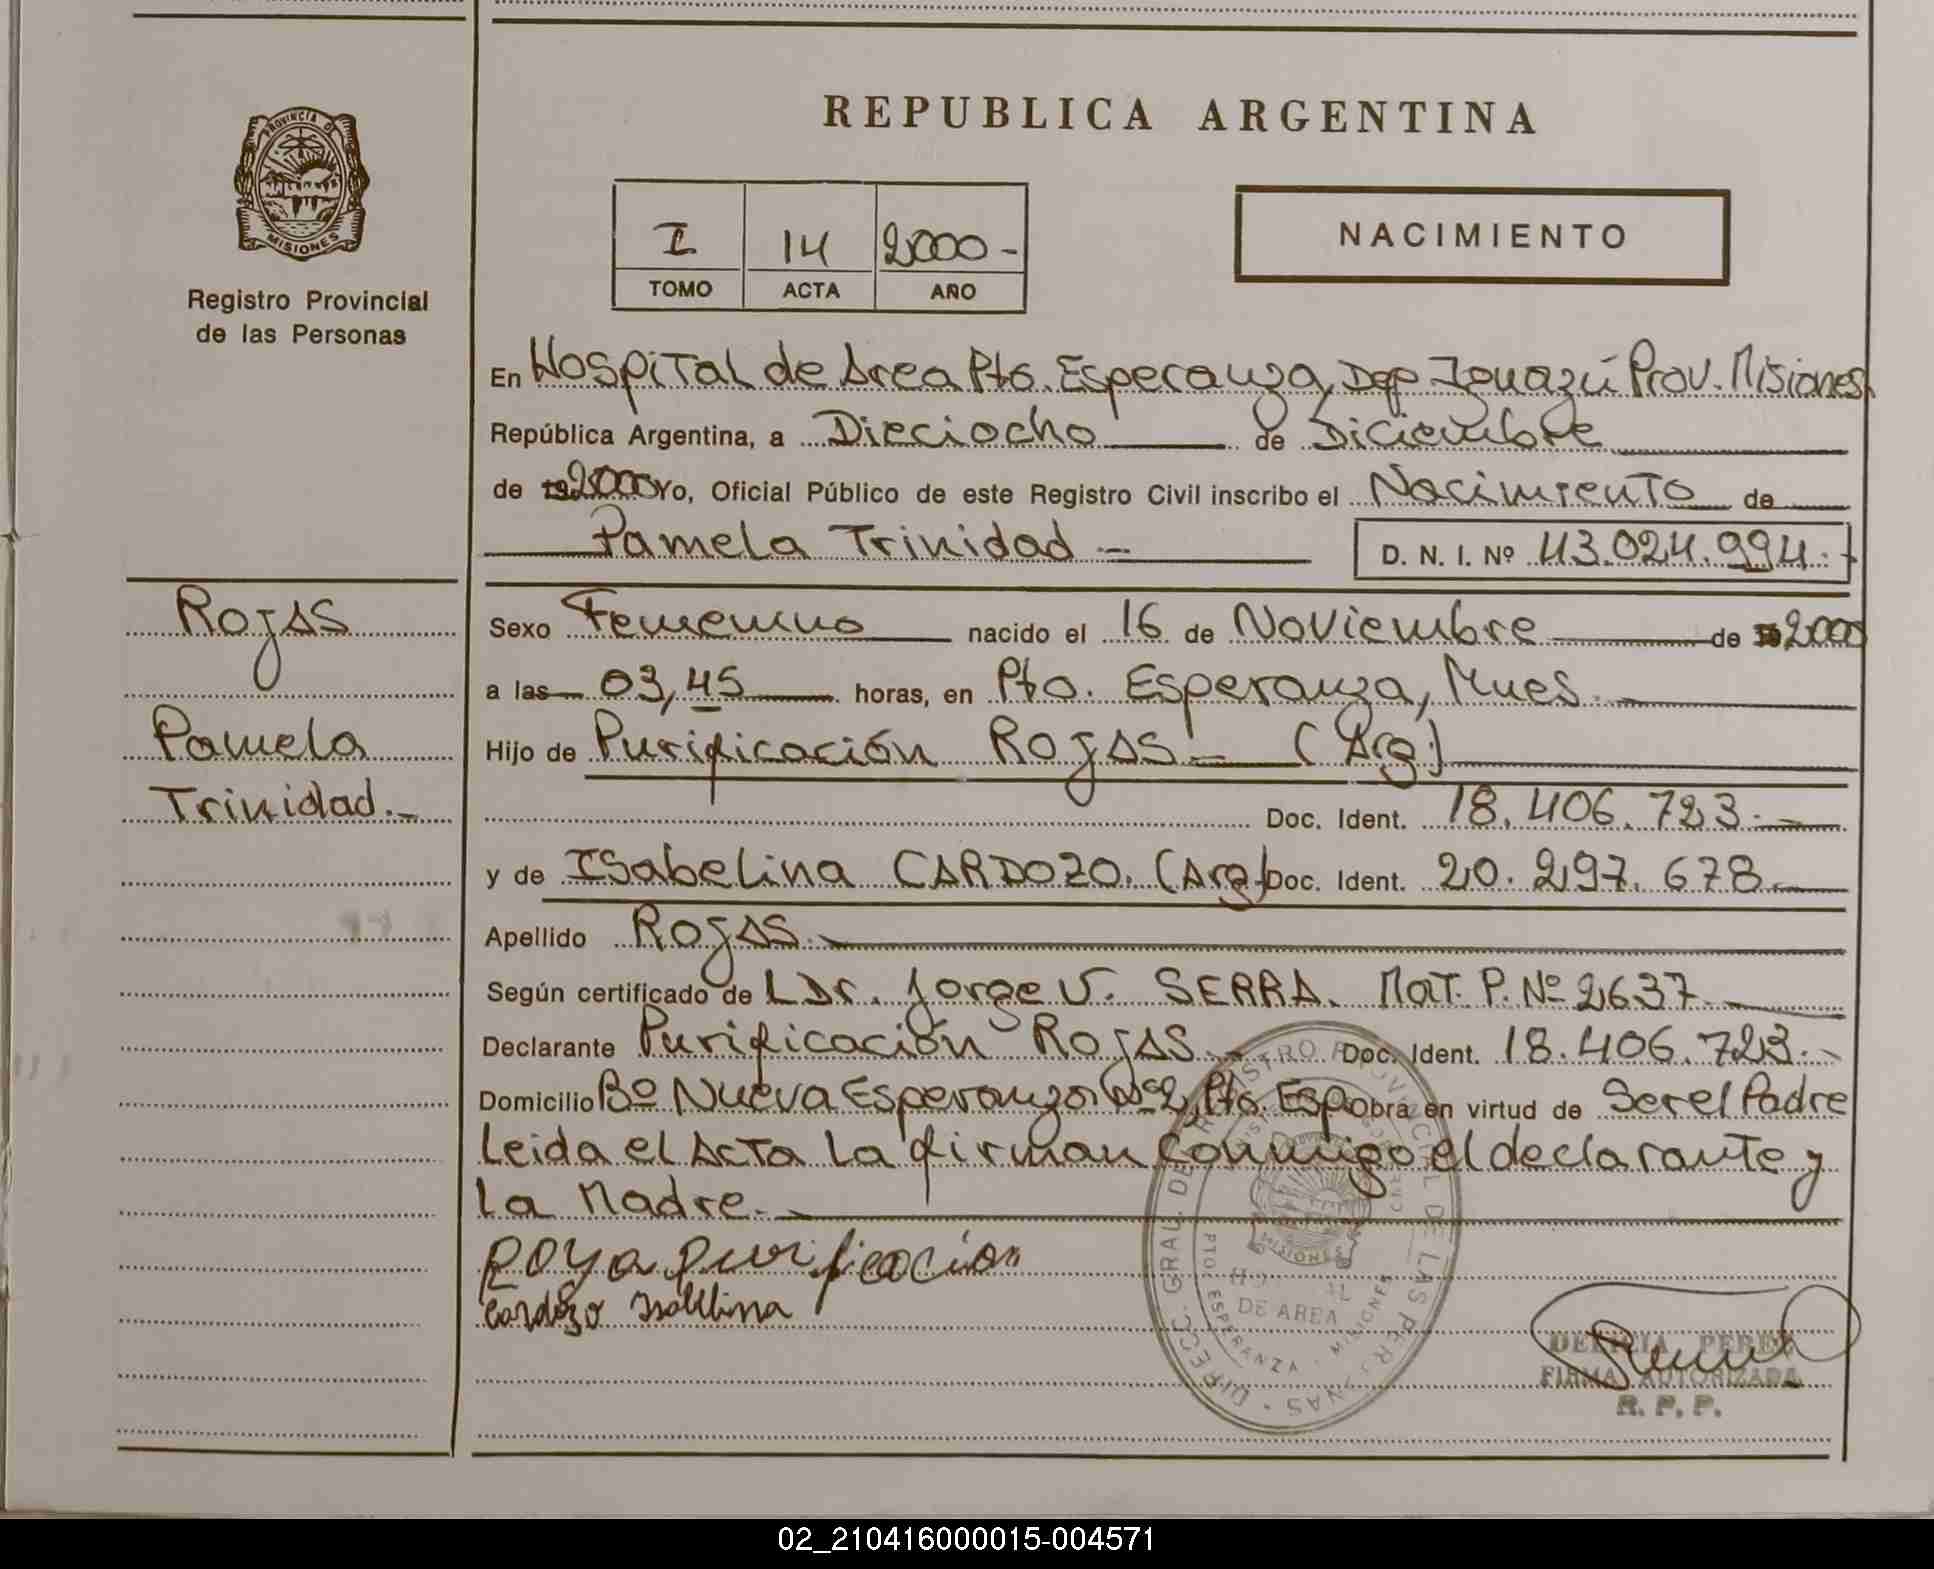 REPUBLICA ARGENTINA
PROVINCIA DE
MISIONES
Registro Provincial
de las Personas
I 14 2000-
TOMO ACTA AÑO
NACIMIENTO
En Hospital de Area Pto. Esperanza, Dep Iguazú Prov. Misiones
República Argentina, a Dieciocho de Diciembre
de 2000 Yo, Oficial Público de este Registro Civil inscribo el Nacimiento de
Pamela Trinidad
D. N. I. Nº 43.024.994.
ROJAS
Pamela
Trinidad.-
Sexo Femenino nacido el 16 de Noviembre de 2000
a las 03,45 horas, en Pto. Esperanza, Mnes.
Hijo de Purificación ROJAS (Arg)
Doc. Ident. 18.406.723.
y de ISabelina CARDOZO. (Arg) Doc. Ident. 20.297.678
Apellido ROJAS.
Según certificado de L Dr. Jorge V. SERRA. MaT. P. Nº 2637
Declarante Purificación ROJAS Doc. Ident. 18.406.723.
Domicilio Bº Nueva Esperanza Nº 2, Pto. Esp obra en virtud de Ser el Padre
Leida el ActA La firman Conmigo el declarante y
La Madre.
Cardozo Isabelina
DIRECC. GRAL. DEL REGISTRO PROVINCIAL DE LAS PERSONAS
MISIONES
DE AREA
PTO. ESPERANZA - MISIONES
DELICIA PEREZ
FIRMA AUTORIZADA
R. P. P.
02_210416000015-004571